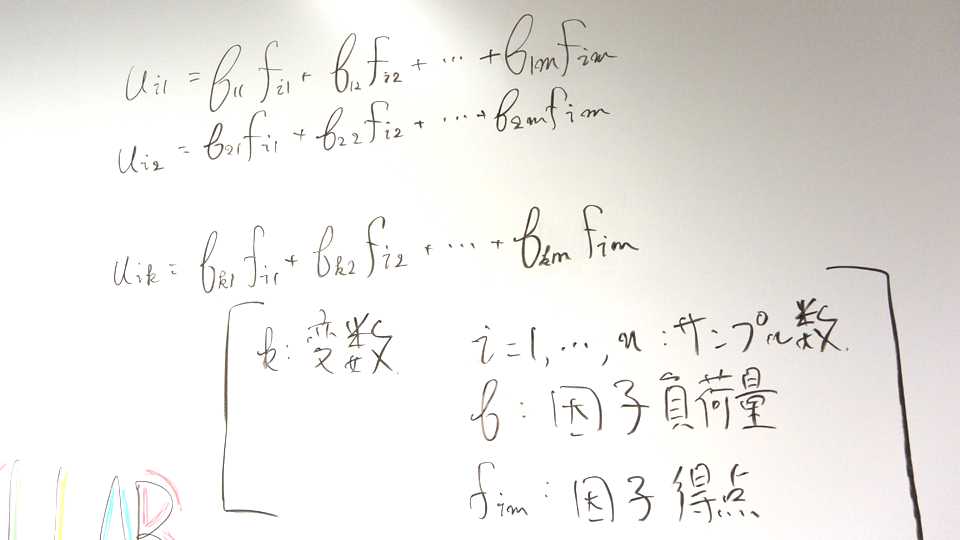 u_{i1} = b_{11} f_{i1} + b_{12} f_{i2} + ⋯ + b_{1m} f_{im}
u_{i2} = b_{21} f_{i1} + b_{22} f_{i2} + ⋯ + b_{2m} f_{im}
u_{ik} = b_{k1} f_{i1} + b_{k2} f_{i2} + ⋯ + b_{km} f_{im}
k: 変数 i=1, ⋯, n : サンプル数.
b : 因子負荷量
f_{im} : 因子得点